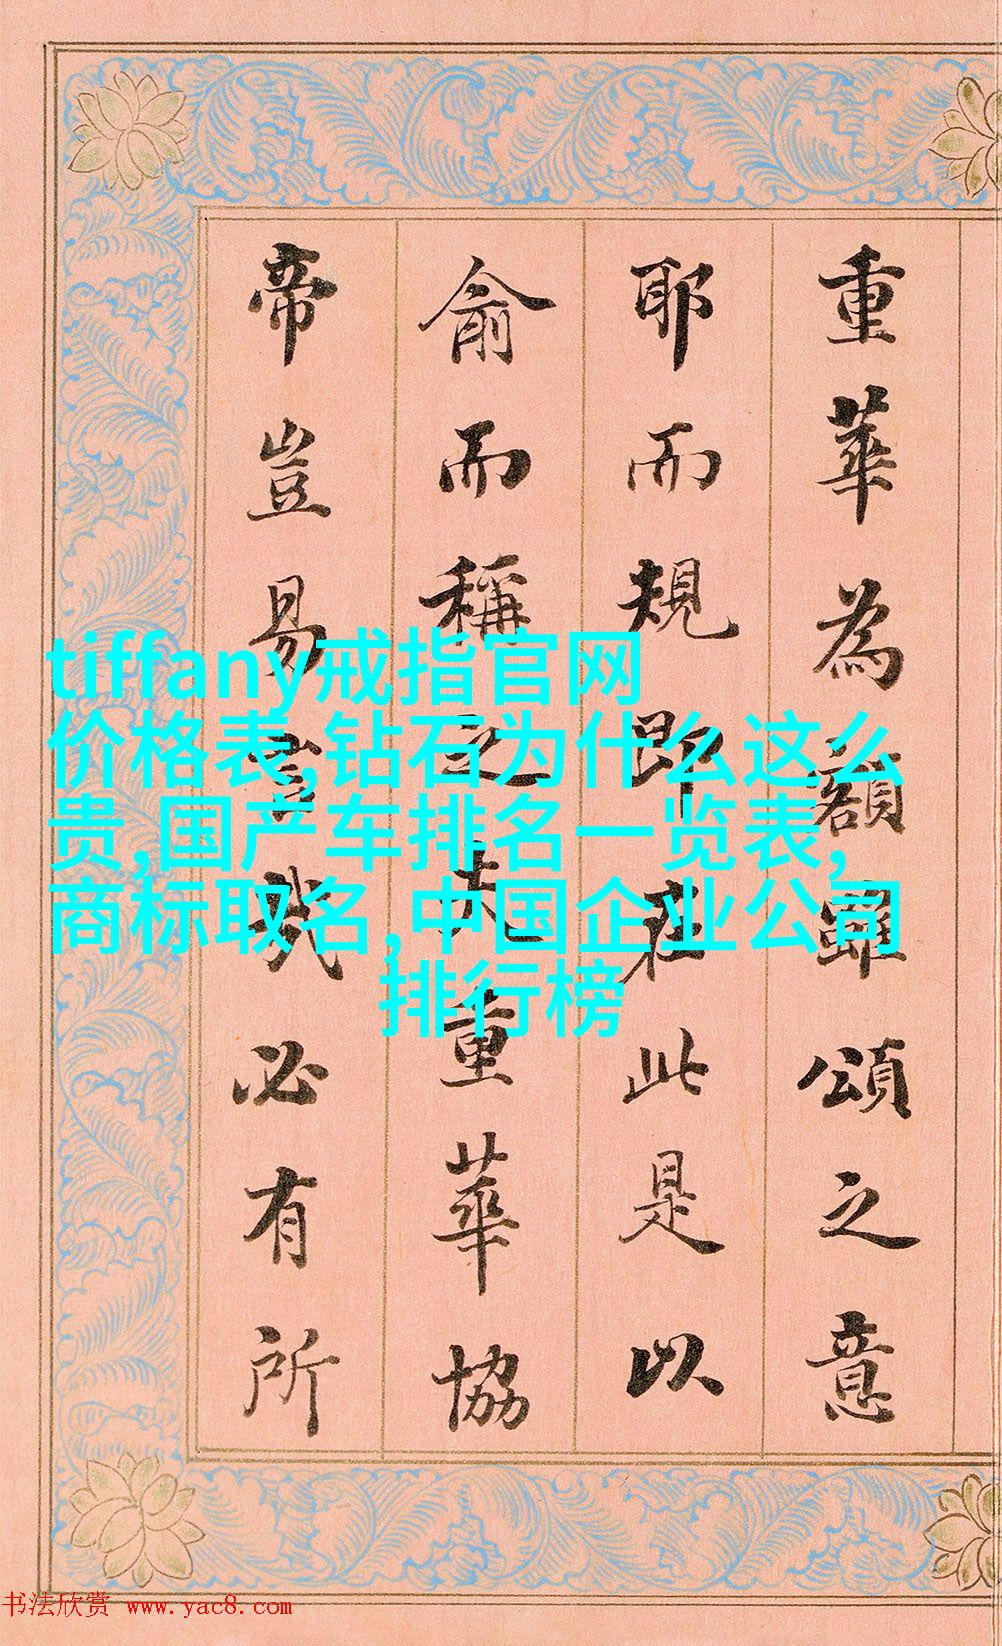 重華為額雖頌之意
耶而規即在此是以
俞而稱之夫重華協
帝豈易言哉必有所
tiffany戒指官网
价格表,钻石为什么这么
贵,国产车排名一览表,
商标取名,中国企业公司
排行榜
书法欣赏 www.yac8.com